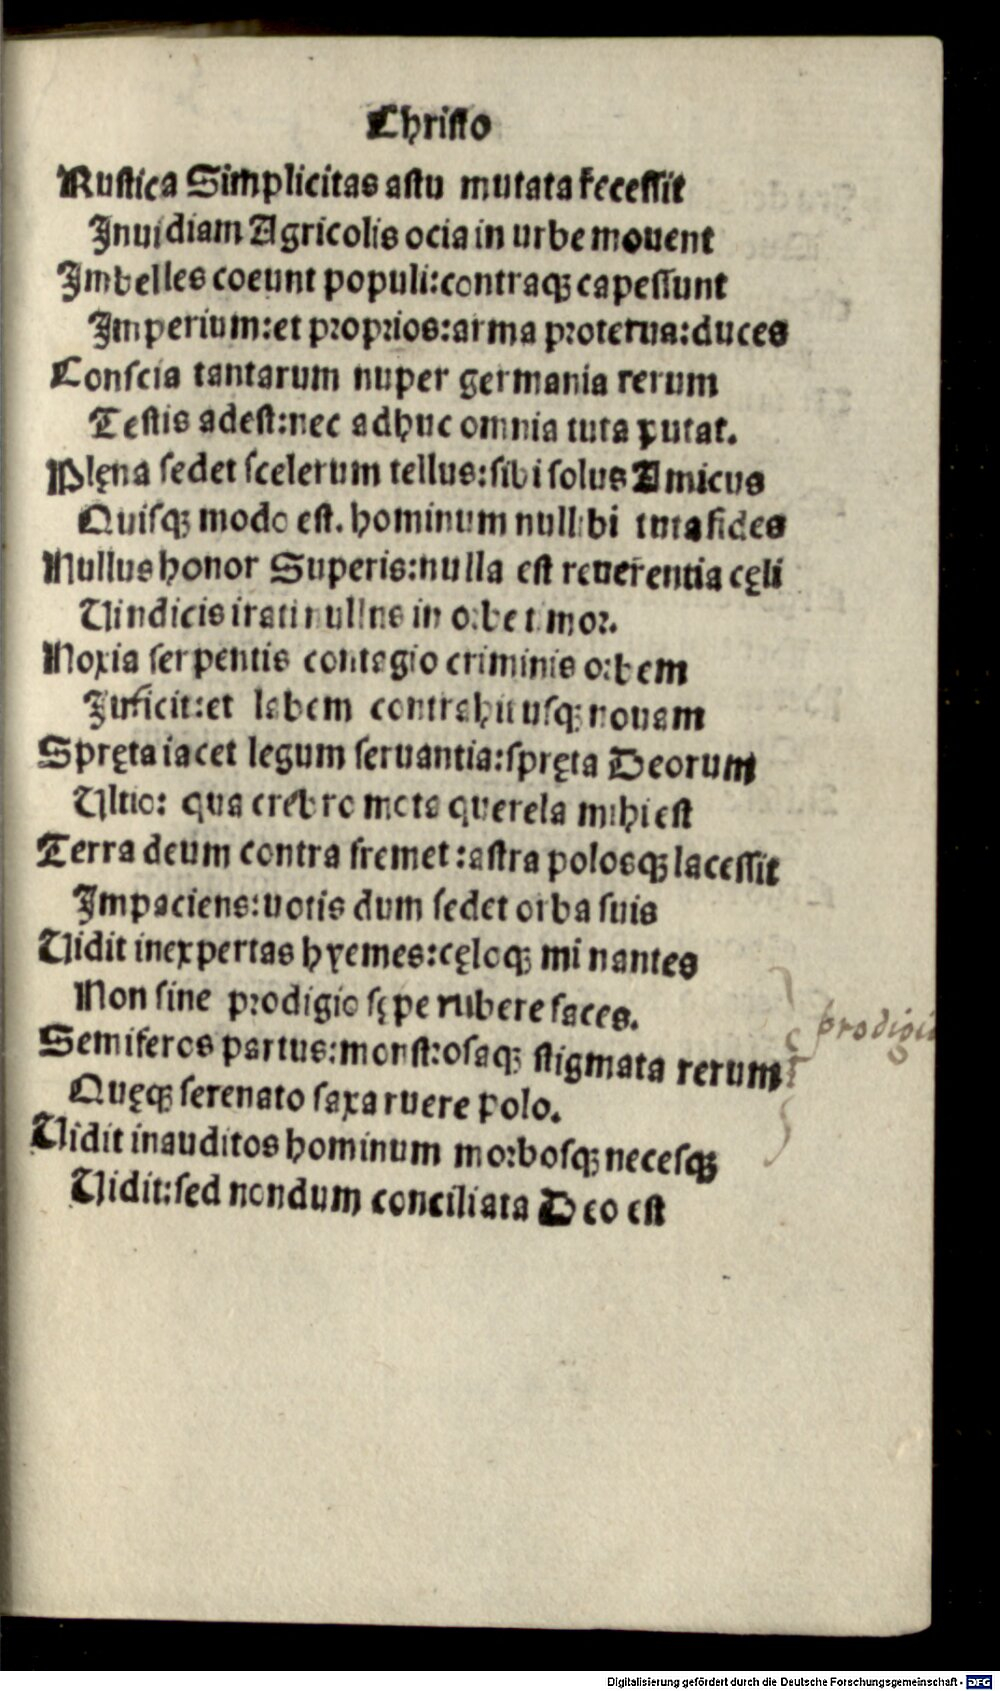 Christo
Rustica Simplicitas astu mutata recessit
Inuidiam Agricolis ocia in urbe mouent
Imbelles coeunt populi: contraqꝫ capessunt
Imperium: et proprios: arma proterua: duces
Conscia tantarum nuper germania rerum
Testis adest: nec adhuc omnia tuta putat.
Plęna sedet scelerum tellus: sibi solus Amicus
Quisqꝫ modo est. hominum nullibi tuta fides
Nullus honor Superis: nulla est reuerentia cęli
Uindicis irati nullus in orbe timor.
Noxia serpentis contagio criminis orbem
Inficit: et labem contrahit usqꝫ nouam
Spręta iacet legum seruantia: spręta Deorum
Ultio: qua crebro mota querela mihi est
Terra deum contra fremet: astra polosqꝫ lacessit
Impaciens: uotis dum sedet orba suis
Uidit inexpertas hyemes: cęloqꝫ minantes
Non sine prodigio sępe rubere faces.
prodigi
Semiferos partus: monstrosaqꝫ stigmata rerum
Quęqꝫ serenato saxa ruere polo.
Uidit inauditos hominum morbosqꝫ necesqꝫ
Uidit: sed nondum conciliata Deo est
Digitalisierung gefördert durch die Deutsche Forschungsgemeinschaft - DFG